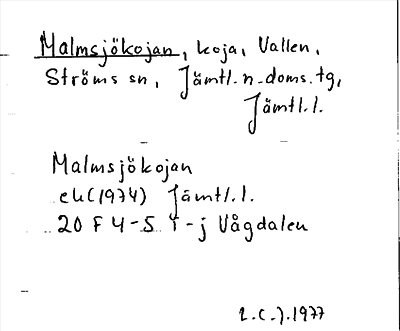 Malmsjökojan, koja, Vallen,
Ströms sn, Jämtl. n. doms. tg,
Jämtl. l.
Malmsjökojan
ek (1974) Jämtl. l.
20 F 4-5 f-j Vågdalen
1977